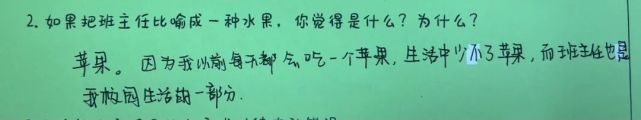 2. 如果把班主任比喻成一种水果，你觉得是什么？为什么？
苹果。因为我以前每天都会吃一个苹果，生活中少不了苹果，而班主任也是
我校园生活的一部分.